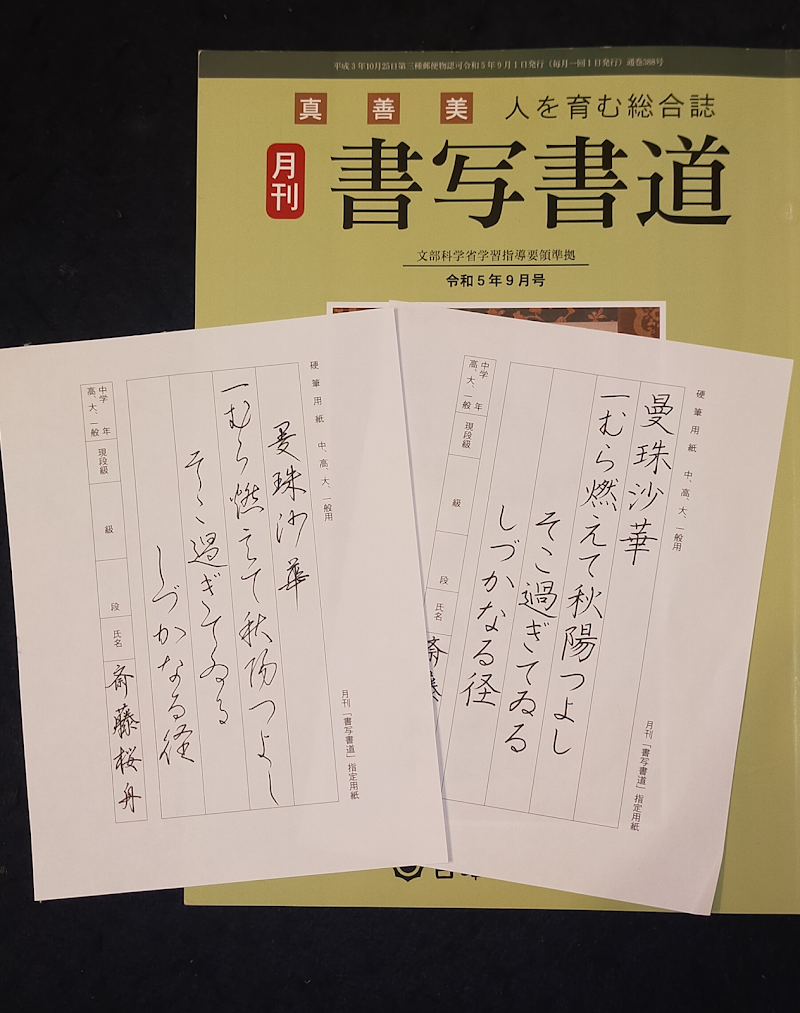 平成3年10月25日第三種郵便物認可令和5年9月1日発行(毎月一回1日発行)通巻388号
真 善 美 人を育む総合誌
月刊
書写書道
文部科学省学習指導要領準拠
令和5年9月号
硬筆用紙 中、高、大、一般用
曼珠沙華
一むら燃えて秋陽つよし
そこ過ぎてゐる
しづかなる径
中学 年
高、大、一般
現段級
級
段
氏名
斎藤
月刊「書写書道」指定用紙
硬筆用紙 中、高、大、一般用
曼珠沙華
一むら燃えて秋陽つよし
そこ過ぎてゐる
しづかなる径
中学 年
高、大、一般
現段級
級
段
氏名
斎藤桜舟
月刊「書写書道」指定用紙